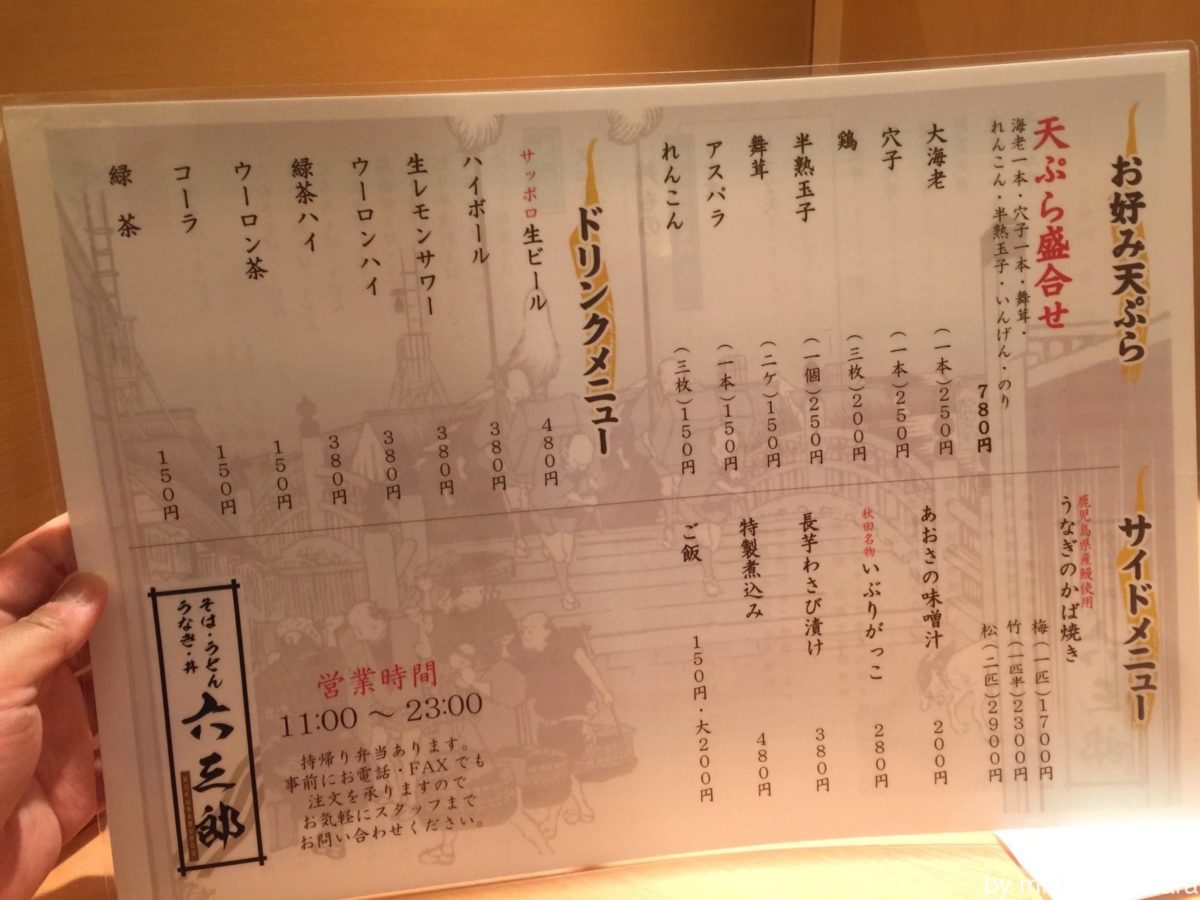 お好み天ぷら
天ぷら盛合せ
海老一本・穴子一本・舞茸・
れんこん・半熟玉子・いんげん・のり
780円
大海老 (一本)250円
穴子 (一本)250円
鶏 (三枚)200円
半熟玉子 (一個)250円
舞茸 (二ケ)150円
アスパラ (一本)150円
れんこん (三枚)150円
ドリンクメニュー
サッポロ生ビール 480円
ハイボール 380円
生レモンサワー 380円
ウーロンハイ 380円
緑茶ハイ 380円
ウーロン茶 150円
コーラ 150円
緑茶 150円
サイドメニュー
鹿児島県産鰻使用
うなぎのかば焼き
梅(一匹)1700円
竹(一匹半)2300円
松(二匹)2900円
あおさの味噌汁 200円
秋田名物いぶりがっこ 280円
長芋わさび漬け 380円
特製煮込み 480円
ご飯 150円・大200円
営業時間
11:00～23:00
持帰り弁当あります。
事前にお電話・FAXでも
注文を承りますので
お気軽にスタッフまで
お問い合わせください。
そば・うどん
うなぎ・丼
六三郎
by